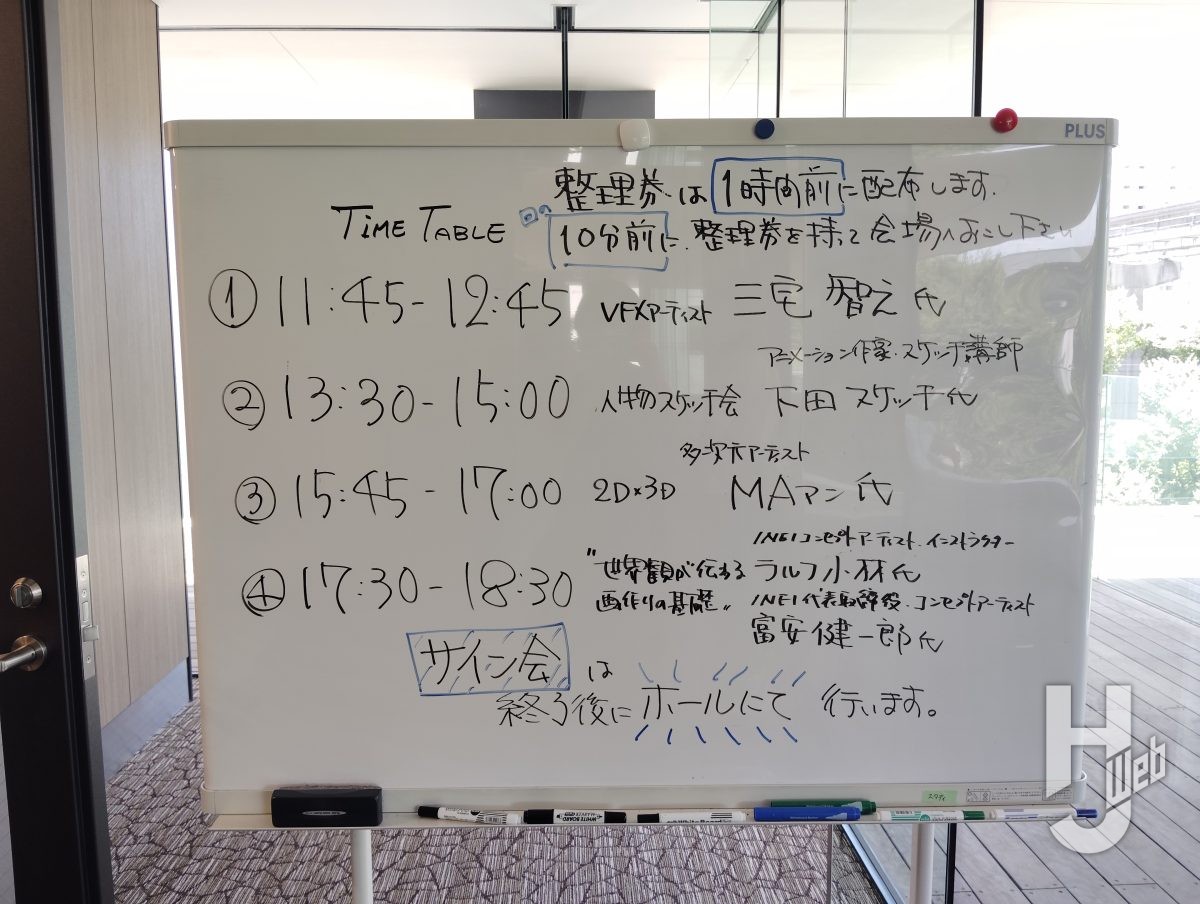 PLUS
整理券は1時間前に配布します.
TiME TABLE
10分前に、整理券を持って会場へおこし下さい
① 11:45-12:45 VFXアーティスト 三宅 智之 氏
アニメーション作家・スケッチ講師
② 13:30-15:00 人物スケッチ会 下田スケッチ氏
多次元アーティスト
③ 15:45-17:00 2D×3D MAアン氏
INEIコンセプトアーティスト・インストラクター
④ 17:30-18:30 "世界観が伝わる ラルフ小林氏
画作りの基礎" INEI代表取締役・コンセプトアーティスト
富安健一郎氏
サイン会は
終了後にホールにて 行います。
WHITE BOARD
HJ Web